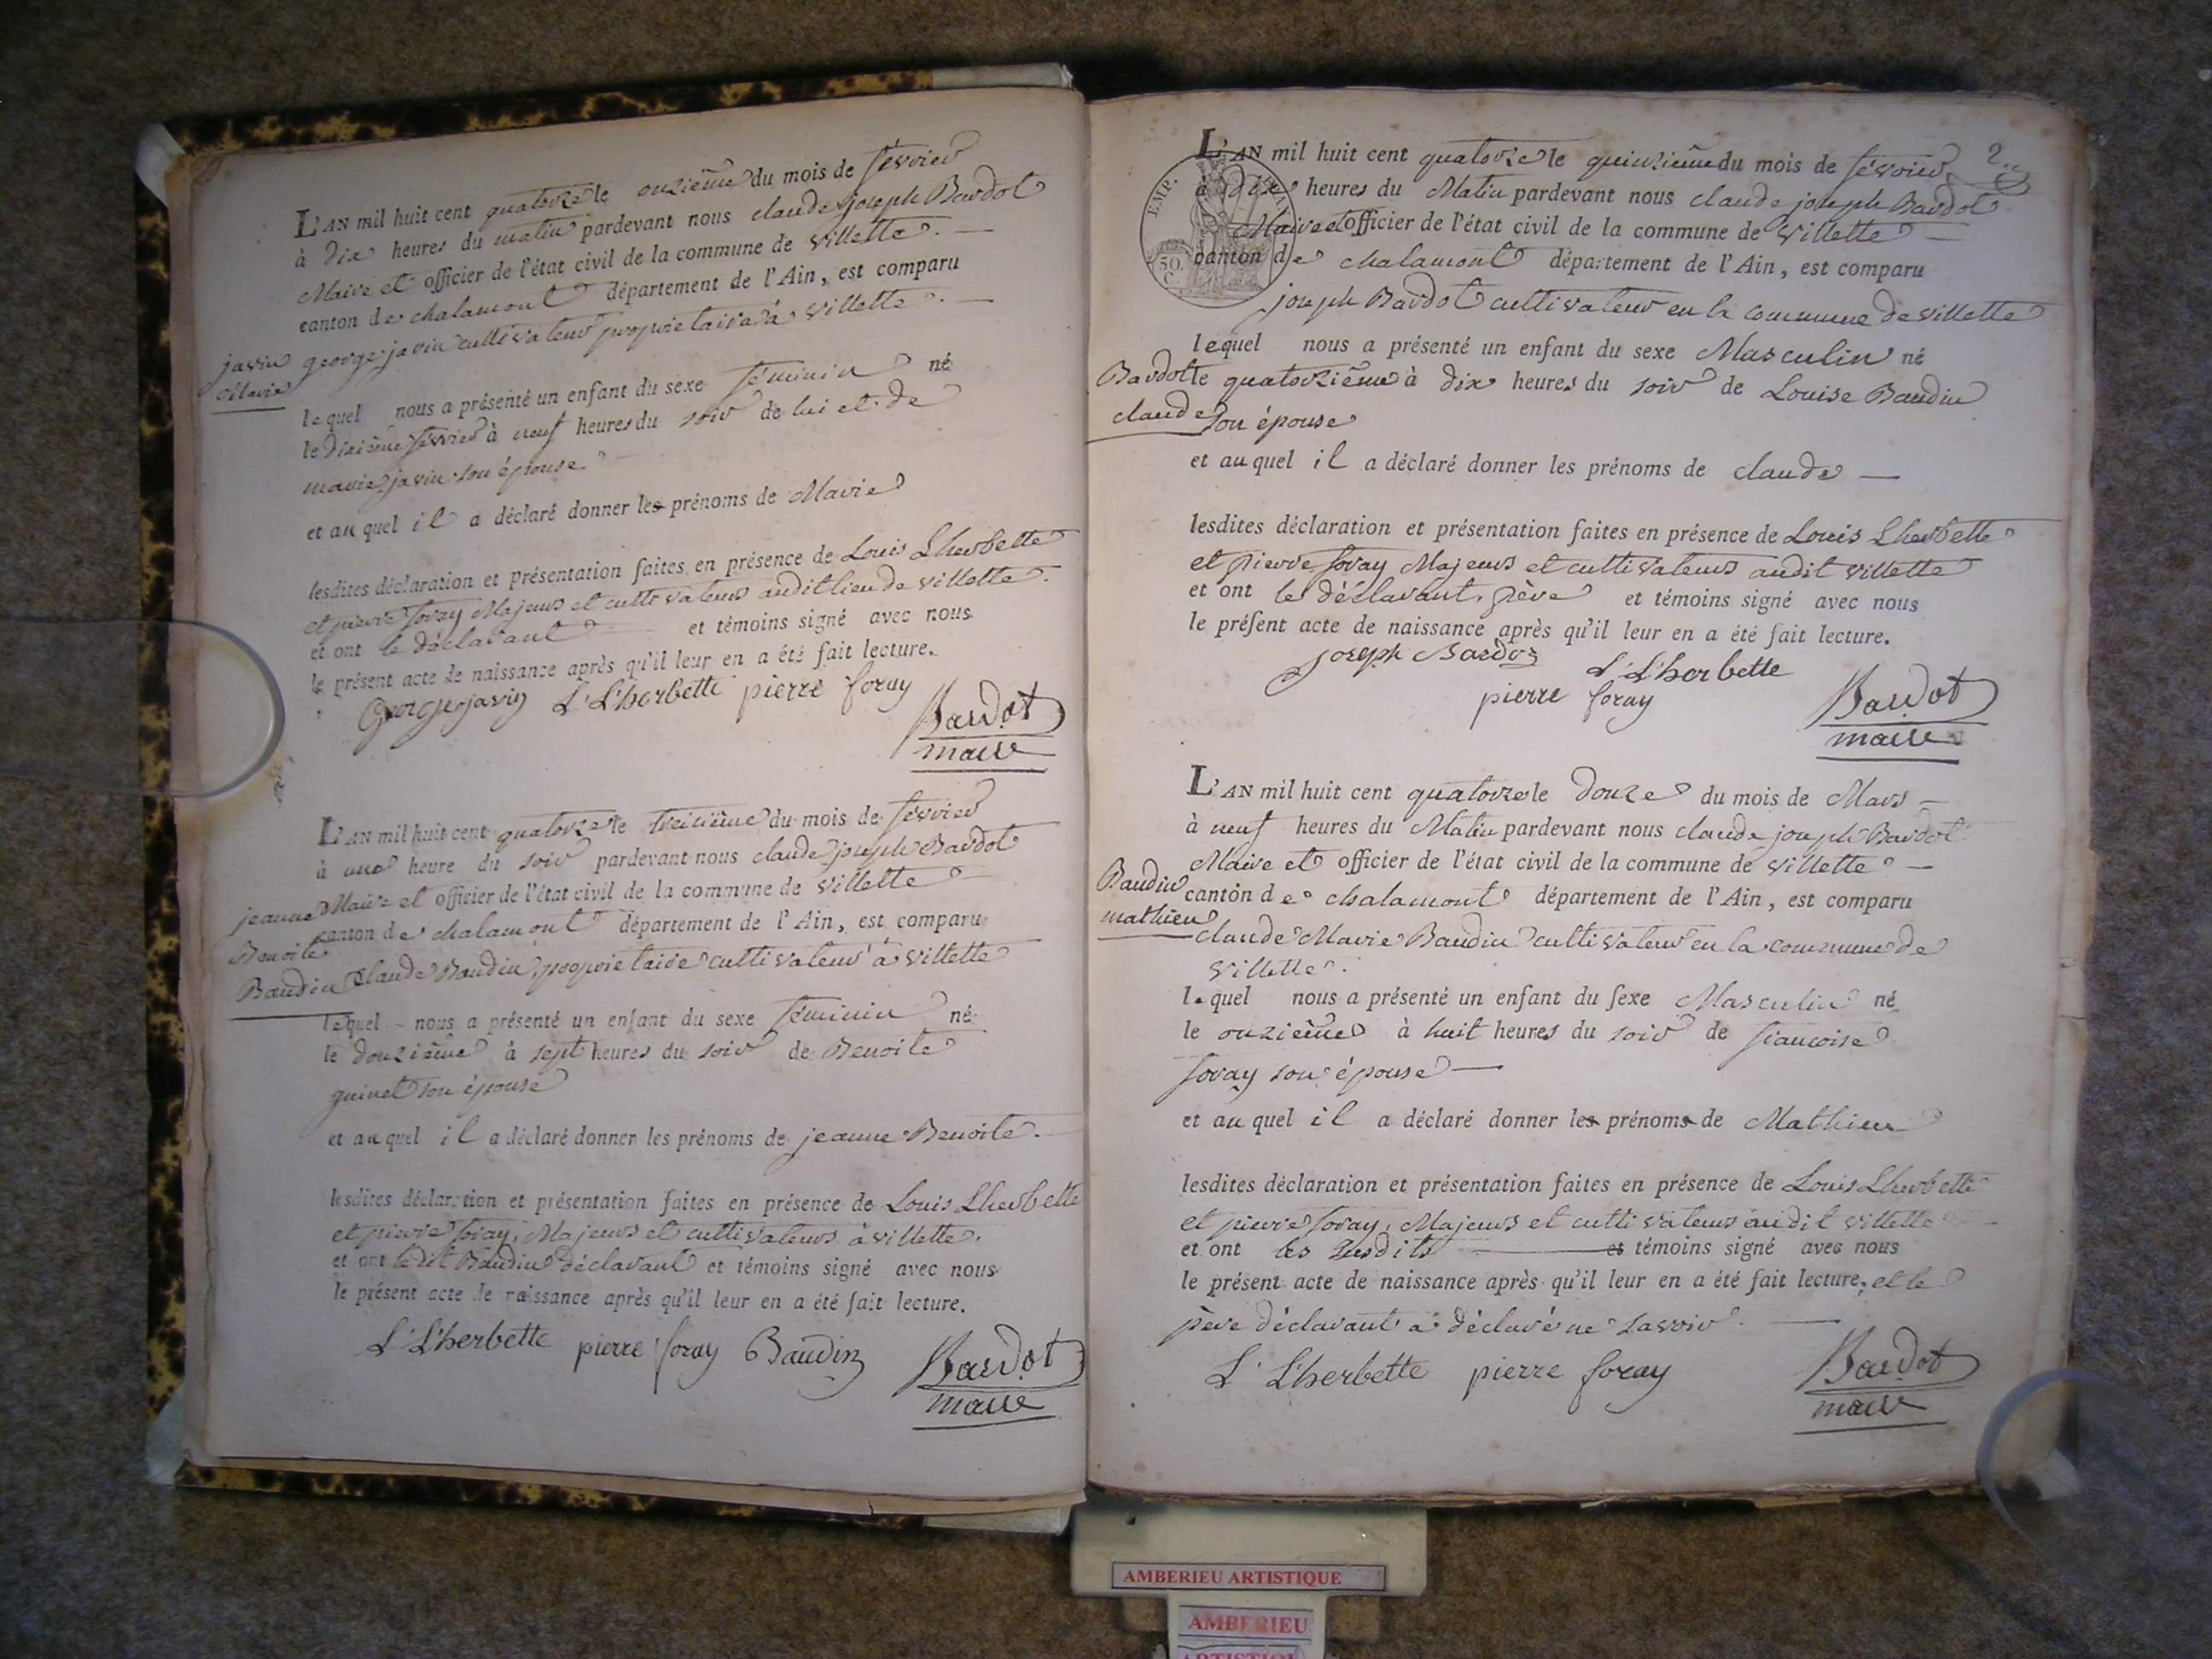 L'AN mil huit cent quatorze le onzième du mois de février
à dix heures du matin pardevant nous claude joseph Bardot
Maire et officier de l'état civil de la commune de villette
canton de chalamont département de l'Ain, est comparu
javin george javin cultivateur proprietaire à villette
Marie
lequel nous a présenté un enfant du sexe féminin né
le dixième février à neuf heures du soir de lui et de
marie javin son épouse.
et au quel il a déclaré donner les prénoms de Marie
lesdites déclaration et présentation faites en présence de Louis Lherbette
et pierre foray Majeurs et cultivateurs audit lieu de villette.
et ont le déclarant et témoins signé avec nous
le présent acte de naissance après qu'il leur en a été fait lecture.
George javin L. L'herbette pierre foray
Bardot
maire
L'AN mil huit cent quatorze le treizième du mois de février
à une heure du soir pardevant nous claude joseph Bardot
jeanne Maire et officier de l'état civil de la commune de villette
Benoite canton de chalamont département de l'Ain, est comparu
Baudin claude Baudin, proprietaire cultivateur à villette
lequel nous a présenté un enfant du sexe féminin né
le douzième à sept heures du soir de Benoite
guinet son épouse
et au quel il a déclaré donner les prénoms de jeanne Benoite.
lesdites déclaration et présentation faites en présence de Louis Lherbette
et pierre foray, Majeurs et cultivateurs à villette.
et ont ledit Baudin déclarant et témoins signé avec nous
le présent acte de naissance après qu'il leur en a été fait lecture.
L. L'herbette pierre foray Baudin
Bardot
maire
2.
L'AN mil huit cent quatorze le quinzième du mois de février
à dix heures du Matin pardevant nous claude joseph Bardot
Maire et officier de l'état civil de la commune de villette
canton de chalamont département de l'Ain, est comparu
EMP. 50. C.
joseph Bardot cultivateur en la commune de villette
lequel nous a présenté un enfant du sexe Masculin né
Bardot le quatorzième à dix heures du soir de Louise Baudin
claude son épouse
et au quel il a déclaré donner les prénoms de claude
lesdites déclaration et présentation faites en présence de Louis Lherbette
et pierre foray Majeurs et cultivateurs audit villette
et ont le déclarant, père et témoins signé avec nous
le présent acte de naissance après qu'il leur en a été fait lecture.
joseph Bardot L. L'herbette
pierre foray
Bardot
maire
L'AN mil huit cent quatorze le douze du mois de Mars
à neuf heures du Matin pardevant nous claude joseph Bardot
Maire et officier de l'état civil de la commune de villette
Baudin canton de chalamont département de l'Ain, est comparu
mathieu claude Marie Baudin cultivateur en la commune de
villette.
lequel nous a présenté un enfant du sexe Masculin né
le onzième à huit heures du soir de françoise
foray son épouse
et au quel il a déclaré donner les prénoms de Mathieu
lesdites déclaration et présentation faites en présence de Louis Lherbette
et pierre foray, Majeurs et cultivateurs audit villette
et ont les susdits et témoins signé avec nous
le présent acte de naissance après qu'il leur en a été fait lecture, et le
père déclarant a déclaré ne savoir.
L. L'herbette pierre foray
Bardot
maire
AMBERIEU ARTISTIQUE
AMBERIEU
ARTISTIQUE